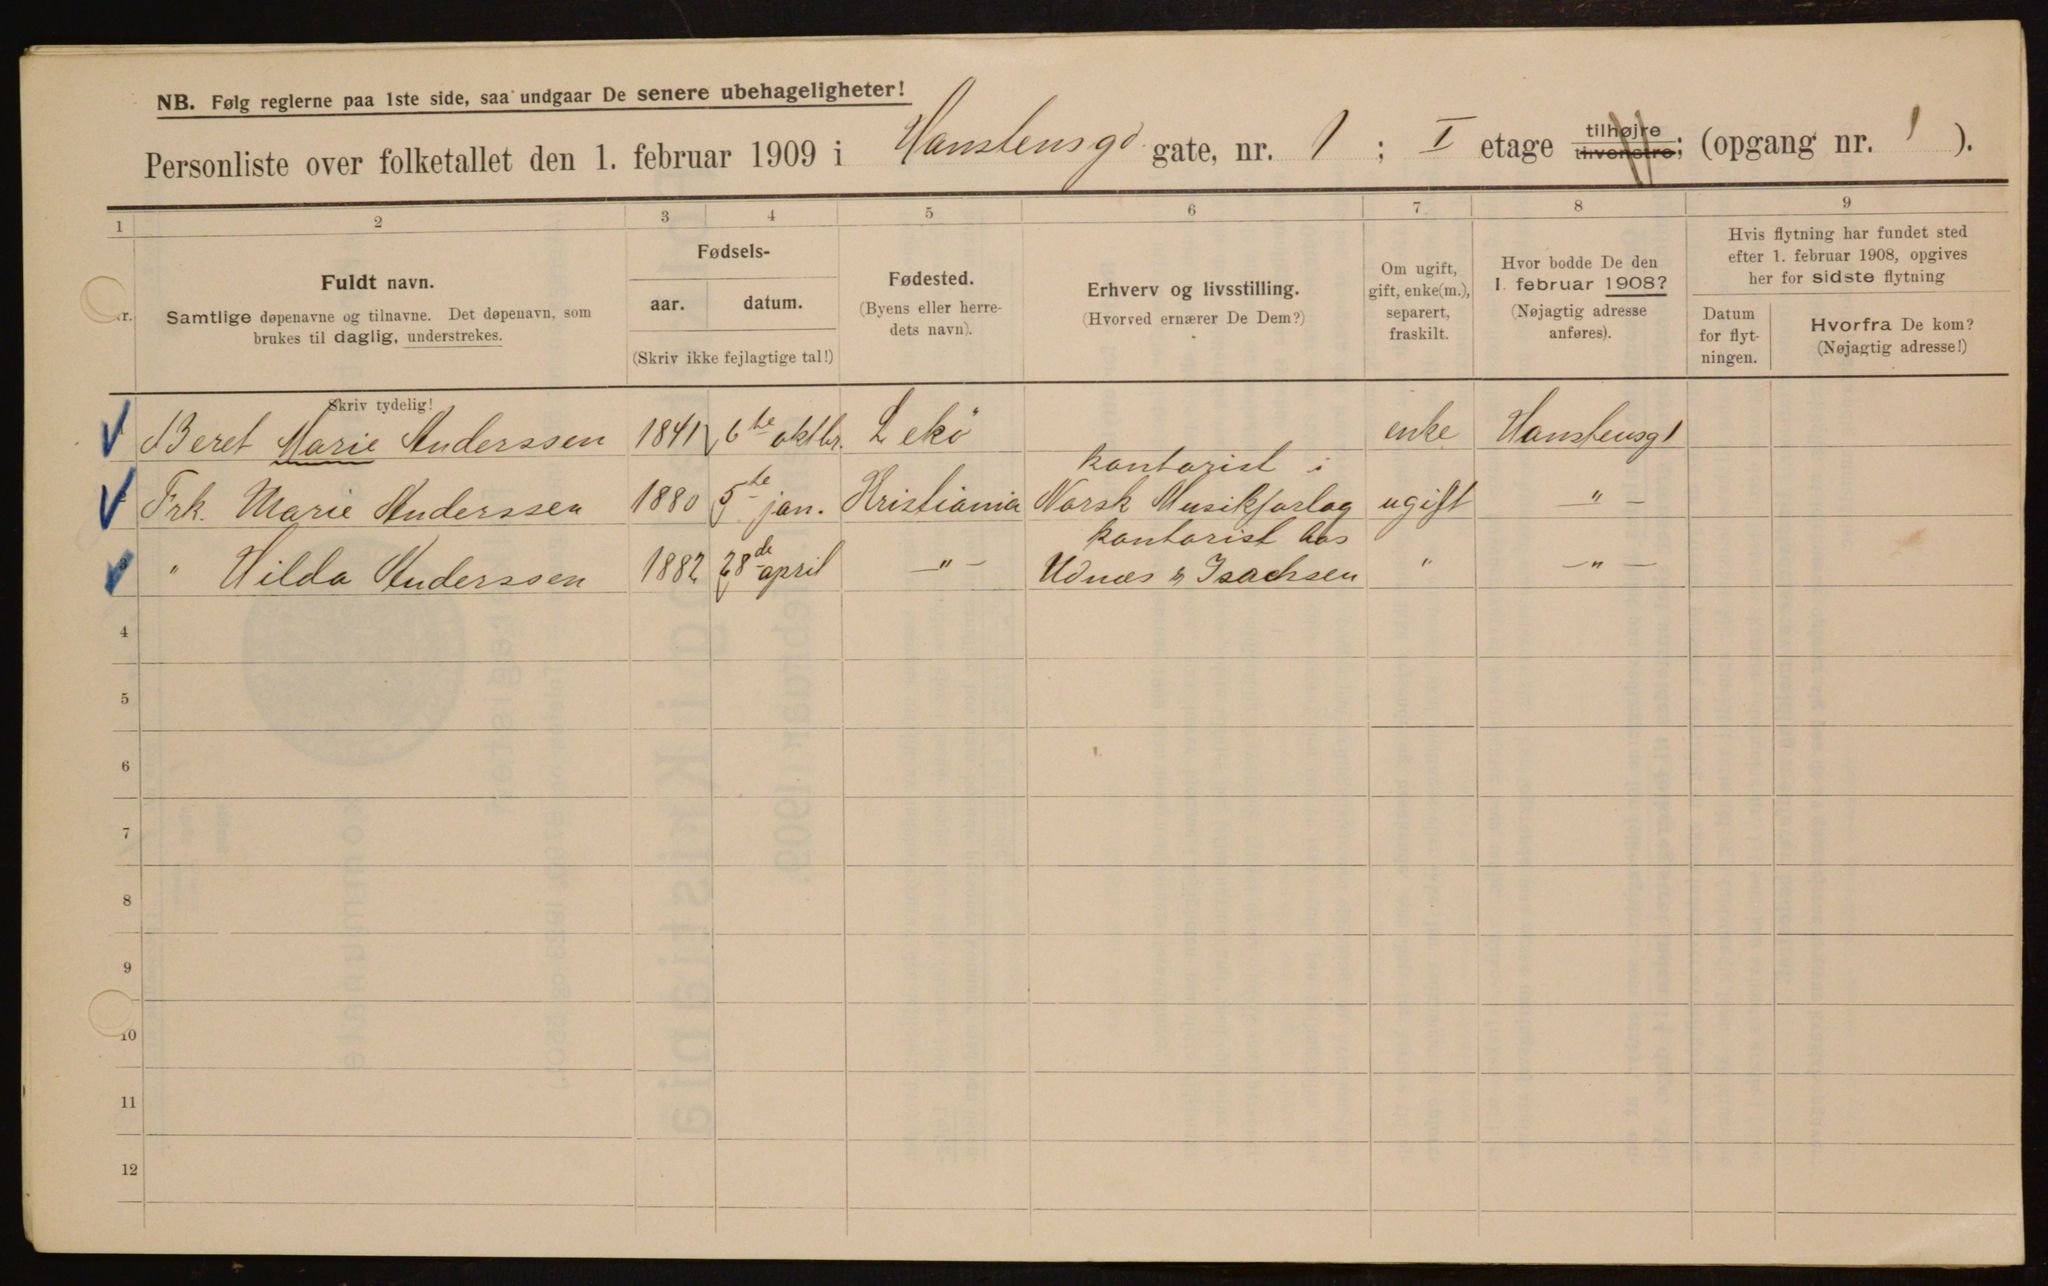 NB. Følg reglerne paa 1ste side, saa undgaar De senere ubehageligheter!
Personliste over folketallet den 1. februar 1909 i Hanstensgd gate, nr. 1; I etage tilhøjre tilvenstre; (opgang nr. 1).
1 2 3 4 5 6 7 8 9
Fuldt navn.
Samtlige døpenavne og tilnavne. Det døpenavn, som
brukes til daglig, understrekes.
Skriv tydelig!
Fødsels-
aar. datum.
(Skriv ikke fejlagtige tal!)
Fødested.
(Byens eller herre-
dets navn).
Erhverv og livsstilling.
(Hvorved ernærer De Dem?)
Om ugift,
gift, enke(m.),
separert,
fraskilt.
Hvor bodde De den
1. februar 1908?
(Nøjagtig adresse
anføres).
Hvis flytning har fundet sted
efter 1. februar 1908, opgives
her for sidste flytning
Datum
for flyt-
ningen.
Hvorfra De kom?
(Nøjagtig adresse!)
Beret Marie Anderssen 1841 6te oktbr. Lekö enke Hanstensg 1
kontorist i
Frk. Marie Anderssen 1880 5te jan. Kristiania Norsk Musikforlag ugift " –
kontorist hos
" Hilda Anderssen 1882 28de april –"– Udnæs & Isachsen " –"–
4
5
6
7
8
9
10
11
12